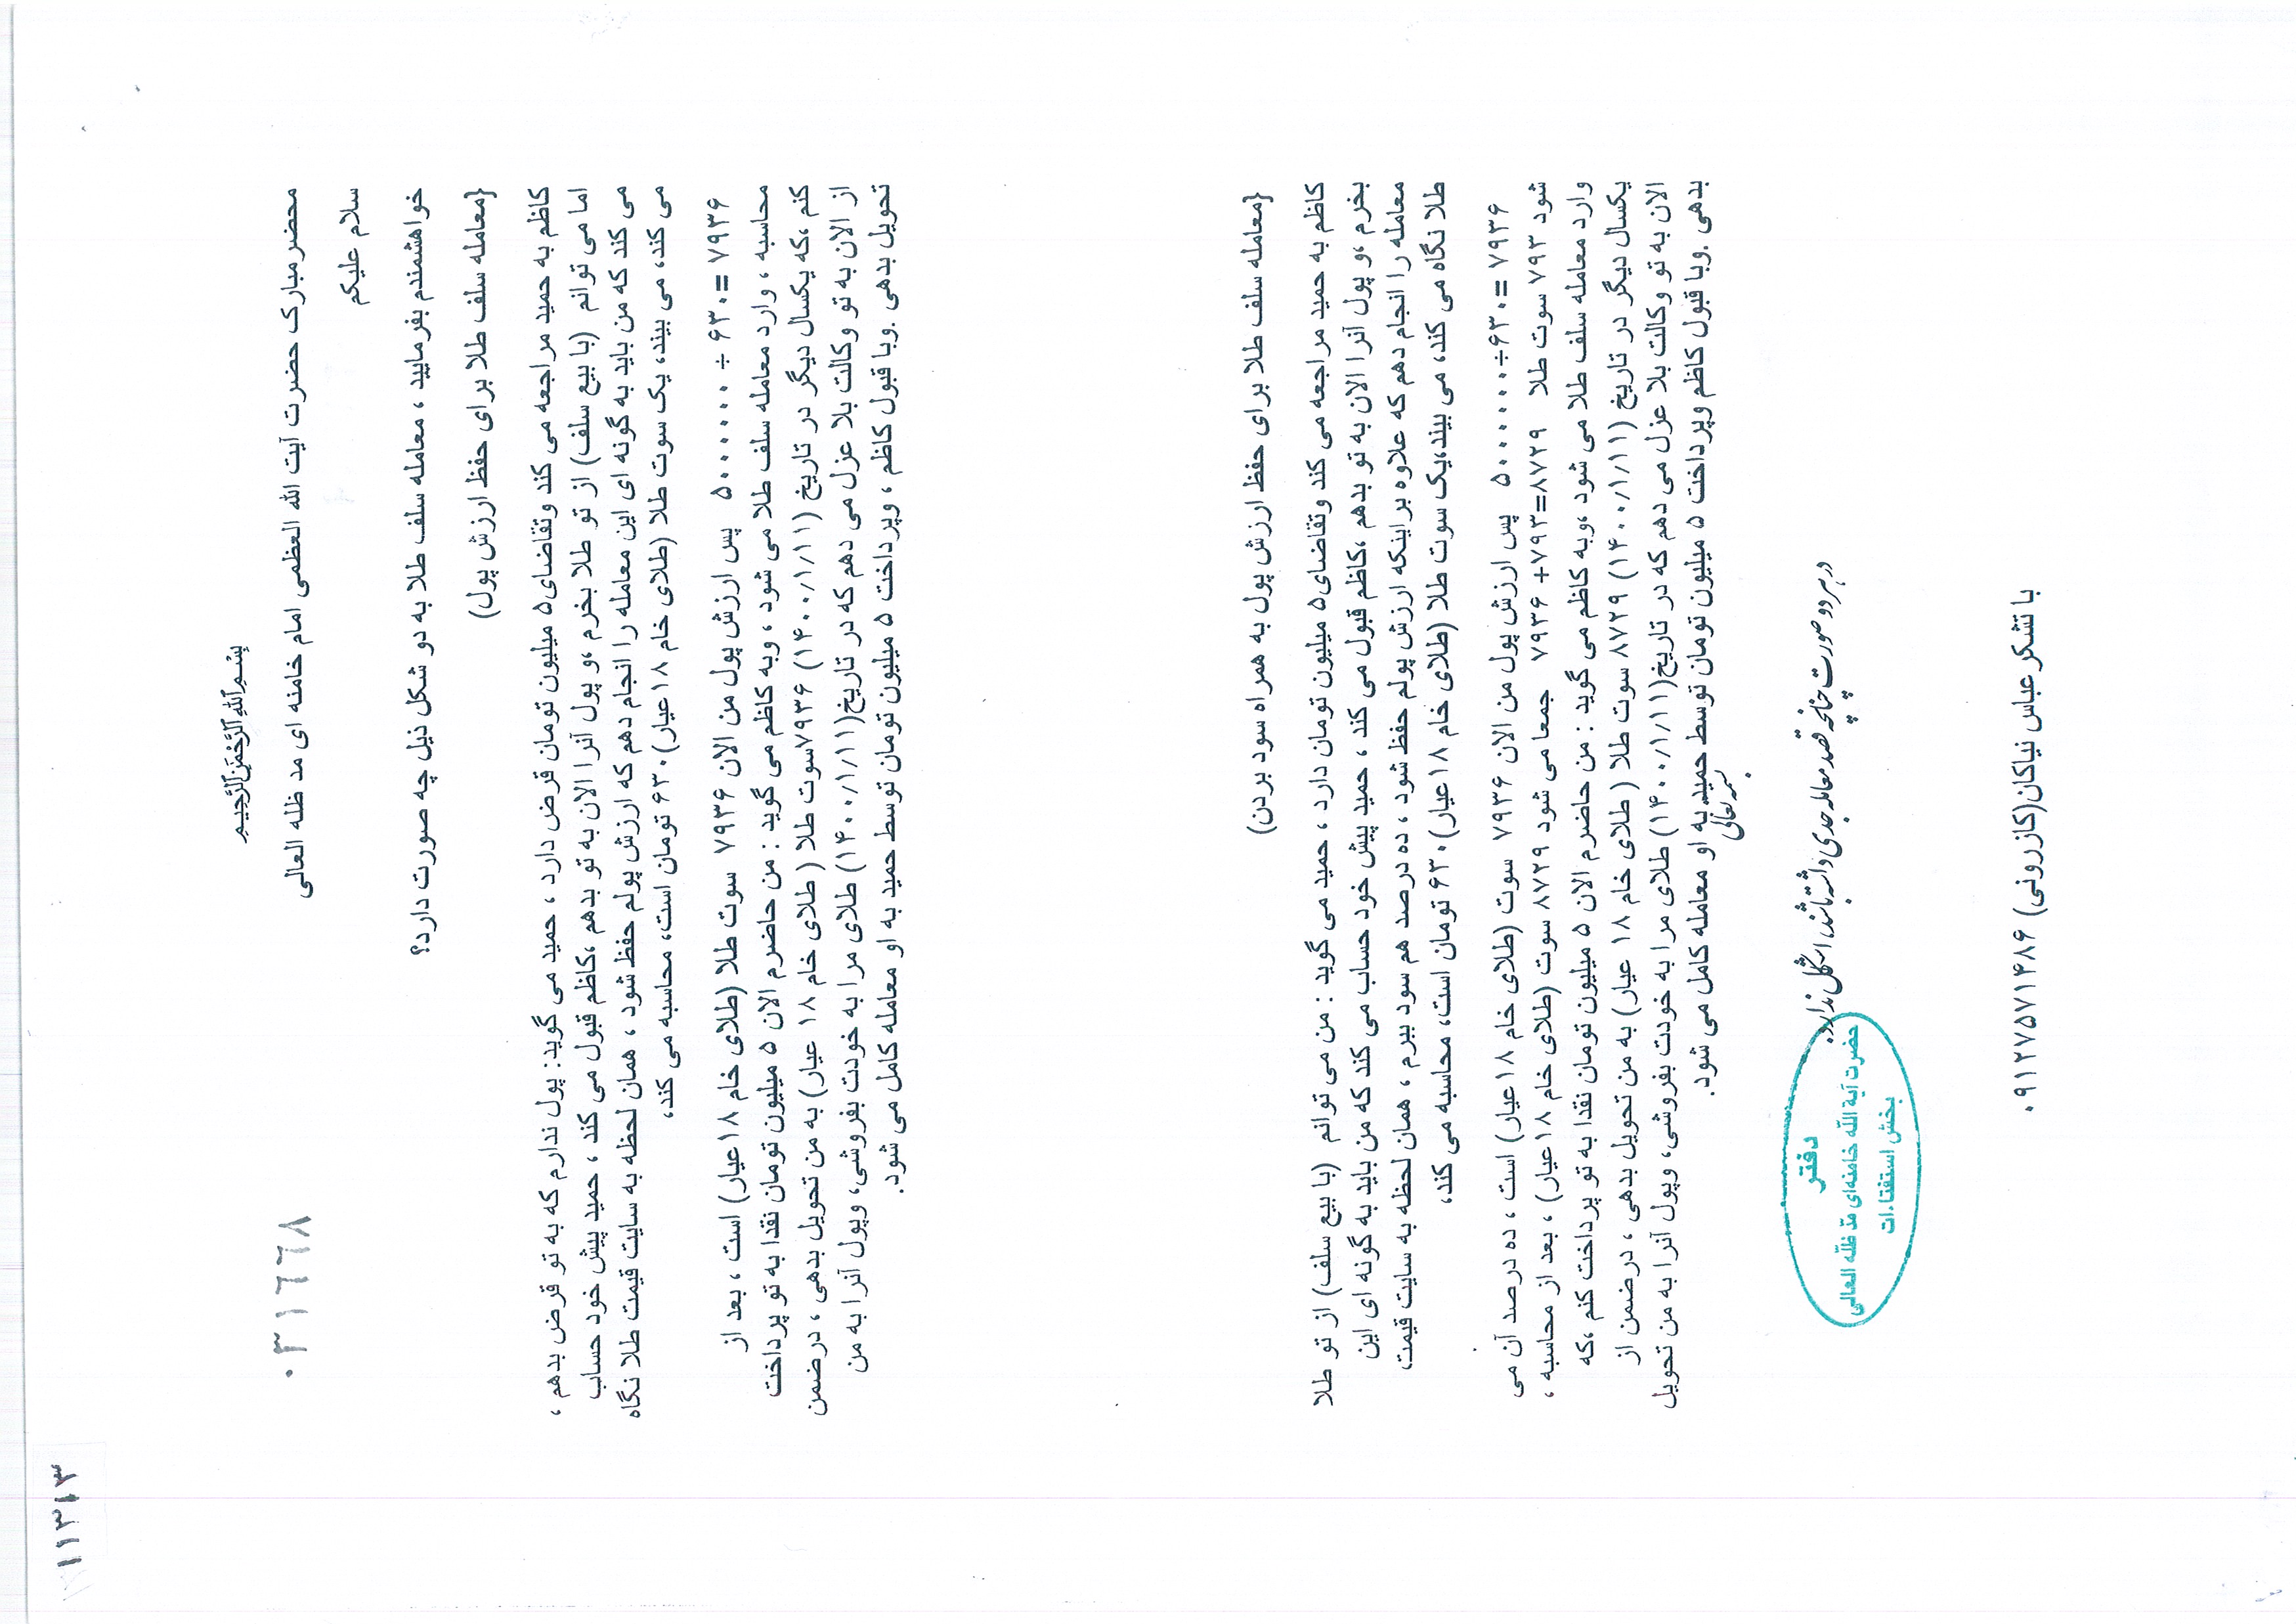 ۱۱۳۱۳
۰۳۱۶۶۸
بِسْمِ اللهِ الرَّحْمنِ الرَّحِيمِ
محضر مبارک حضرت آیت الله العظمی امام خامنه ای مد ظله العالی
سلام علیکم
خواهشمندم بفرمایید ، معامله سلف طلا به دو شکل ذیل چه صورت دارد؟
{معامله سلف طلا برای حفظ ارزش پول)
کاظم به حمید مراجعه می کند وتقاضای۵ میلیون تومان قرض دارد ، حمید می گوید: پول ندارم که به تو قرض بدهم ،
اما می توانم (با بیع سلف) از تو طلا بخرم ،و پول آنرا الان به تو بدهم ،کاظم قبول می کند ، حمید پیش خود حساب
می کند که من باید به گونه ای این معامله را انجام دهم که ارزش پولم حفظ شود ، همان لحظه به سایت قیمت طلا نگاه
می کند، می بیند، یک سوت طلا (طلای خام ۱۸عیار)۶۳۰ تومان است، محاسبه می کند،
۷۹۳۶ =۶۳۰ ÷ ۵۰۰۰۰۰۰ پس ارزش پول من الان ۷۹۳۶ سوت طلا (طلای خام ۱۸عیار) است ، بعد از
محاسبه ، وارد معامله سلف طلا می شود ، وبه کاظم می گوید : من حاضرم الان ۵ میلیون تومان نقدا به تو پرداخت
کنم ،که یکسال دیگر در تاریخ (۱۴۰۰/۱/۱۱) ۷۹۳۶سوت طلا ( طلای خام ۱۸ عیار) به من تحویل بدهی ، درضمن
از الان به تو وکالت بلا عزل می دهم که در تاریخ(۱۴۰۰/۱/۱۱) طلای مرا به خودت بفروشی، وپول آنرا به من
تحویل بدهی .وبا قبول کاظم ، وپرداخت ۵ میلیون تومان توسط حمید به او معامله کامل می شود.
{معامله سلف طلا برای حفظ ارزش پول به همراه سود بردن)
کاظم به حمید مراجعه می کند وتقاضای۵ میلیون تومان دارد ، حمید می گوید : من می توانم (با بیع سلف) از تو طلا
بخرم ،و پول آنرا الان به تو بدهم ،کاظم قبول می کند ، حمید پیش خود حساب می کند که من باید به گونه ای این
معامله را انجام دهم که علاوه براینکه ارزش پولم حفظ شود ، ده درصد هم سود ببرم ، همان لحظه به سایت قیمت
طلا نگاه می کند، می بیند،یک سوت طلا (طلای خام ۱۸عیار)۶۳۰ تومان است، محاسبه می کند،
۷۹۳۶ =۶۳۰÷۵۰۰۰۰۰۰ پس ارزش پول من الان ۷۹۳۶ سوت (طلای خام ۱۸عیار) است ، ده درصد آن می
شود ۷۹۳ سوت طلا ۸۷۲۹=۷۹۳+ ۷۹۳۶ جمعا می شود ۸۷۲۹ سوت (طلای خام ۱۸عیار) ، بعد از محاسبه ،
وارد معامله سلف طلا می شود ،وبه کاظم می گوید : من حاضرم الان ۵ میلیون تومان نقدا به تو پرداخت کنم ،که
یکسال دیگر در تاریخ (۱۴۰۰/۱/۱۱) ۸۷۲۹ سوت طلا ( طلای خام ۱۸ عیار) به من تحویل بدهی ، درضمن از
الان به تو وکالت بلا عزل می دهم که در تاریخ(۱۴۰۰/۱/۱۱) طلای مرا به خودت بفروشی، وپول آنرا به من تحویل
بدهی .وبا قبول کاظم وپرداخت ۵ میلیون تومان توسط حمید به او معامله کامل می شود.
بسمه تعالی
در هر دو صورت چنانچه قصد معامله جدی داشته باشند، اشکال ندارد.
دفتر
حضرت آیة الله خامنه‌ای مدّ ظلّه العالی
بخش استفتاءات
با تشکر عباس نیاکان(کازرونی) ۰۹۱۲۷۵۷۱۴۸۶